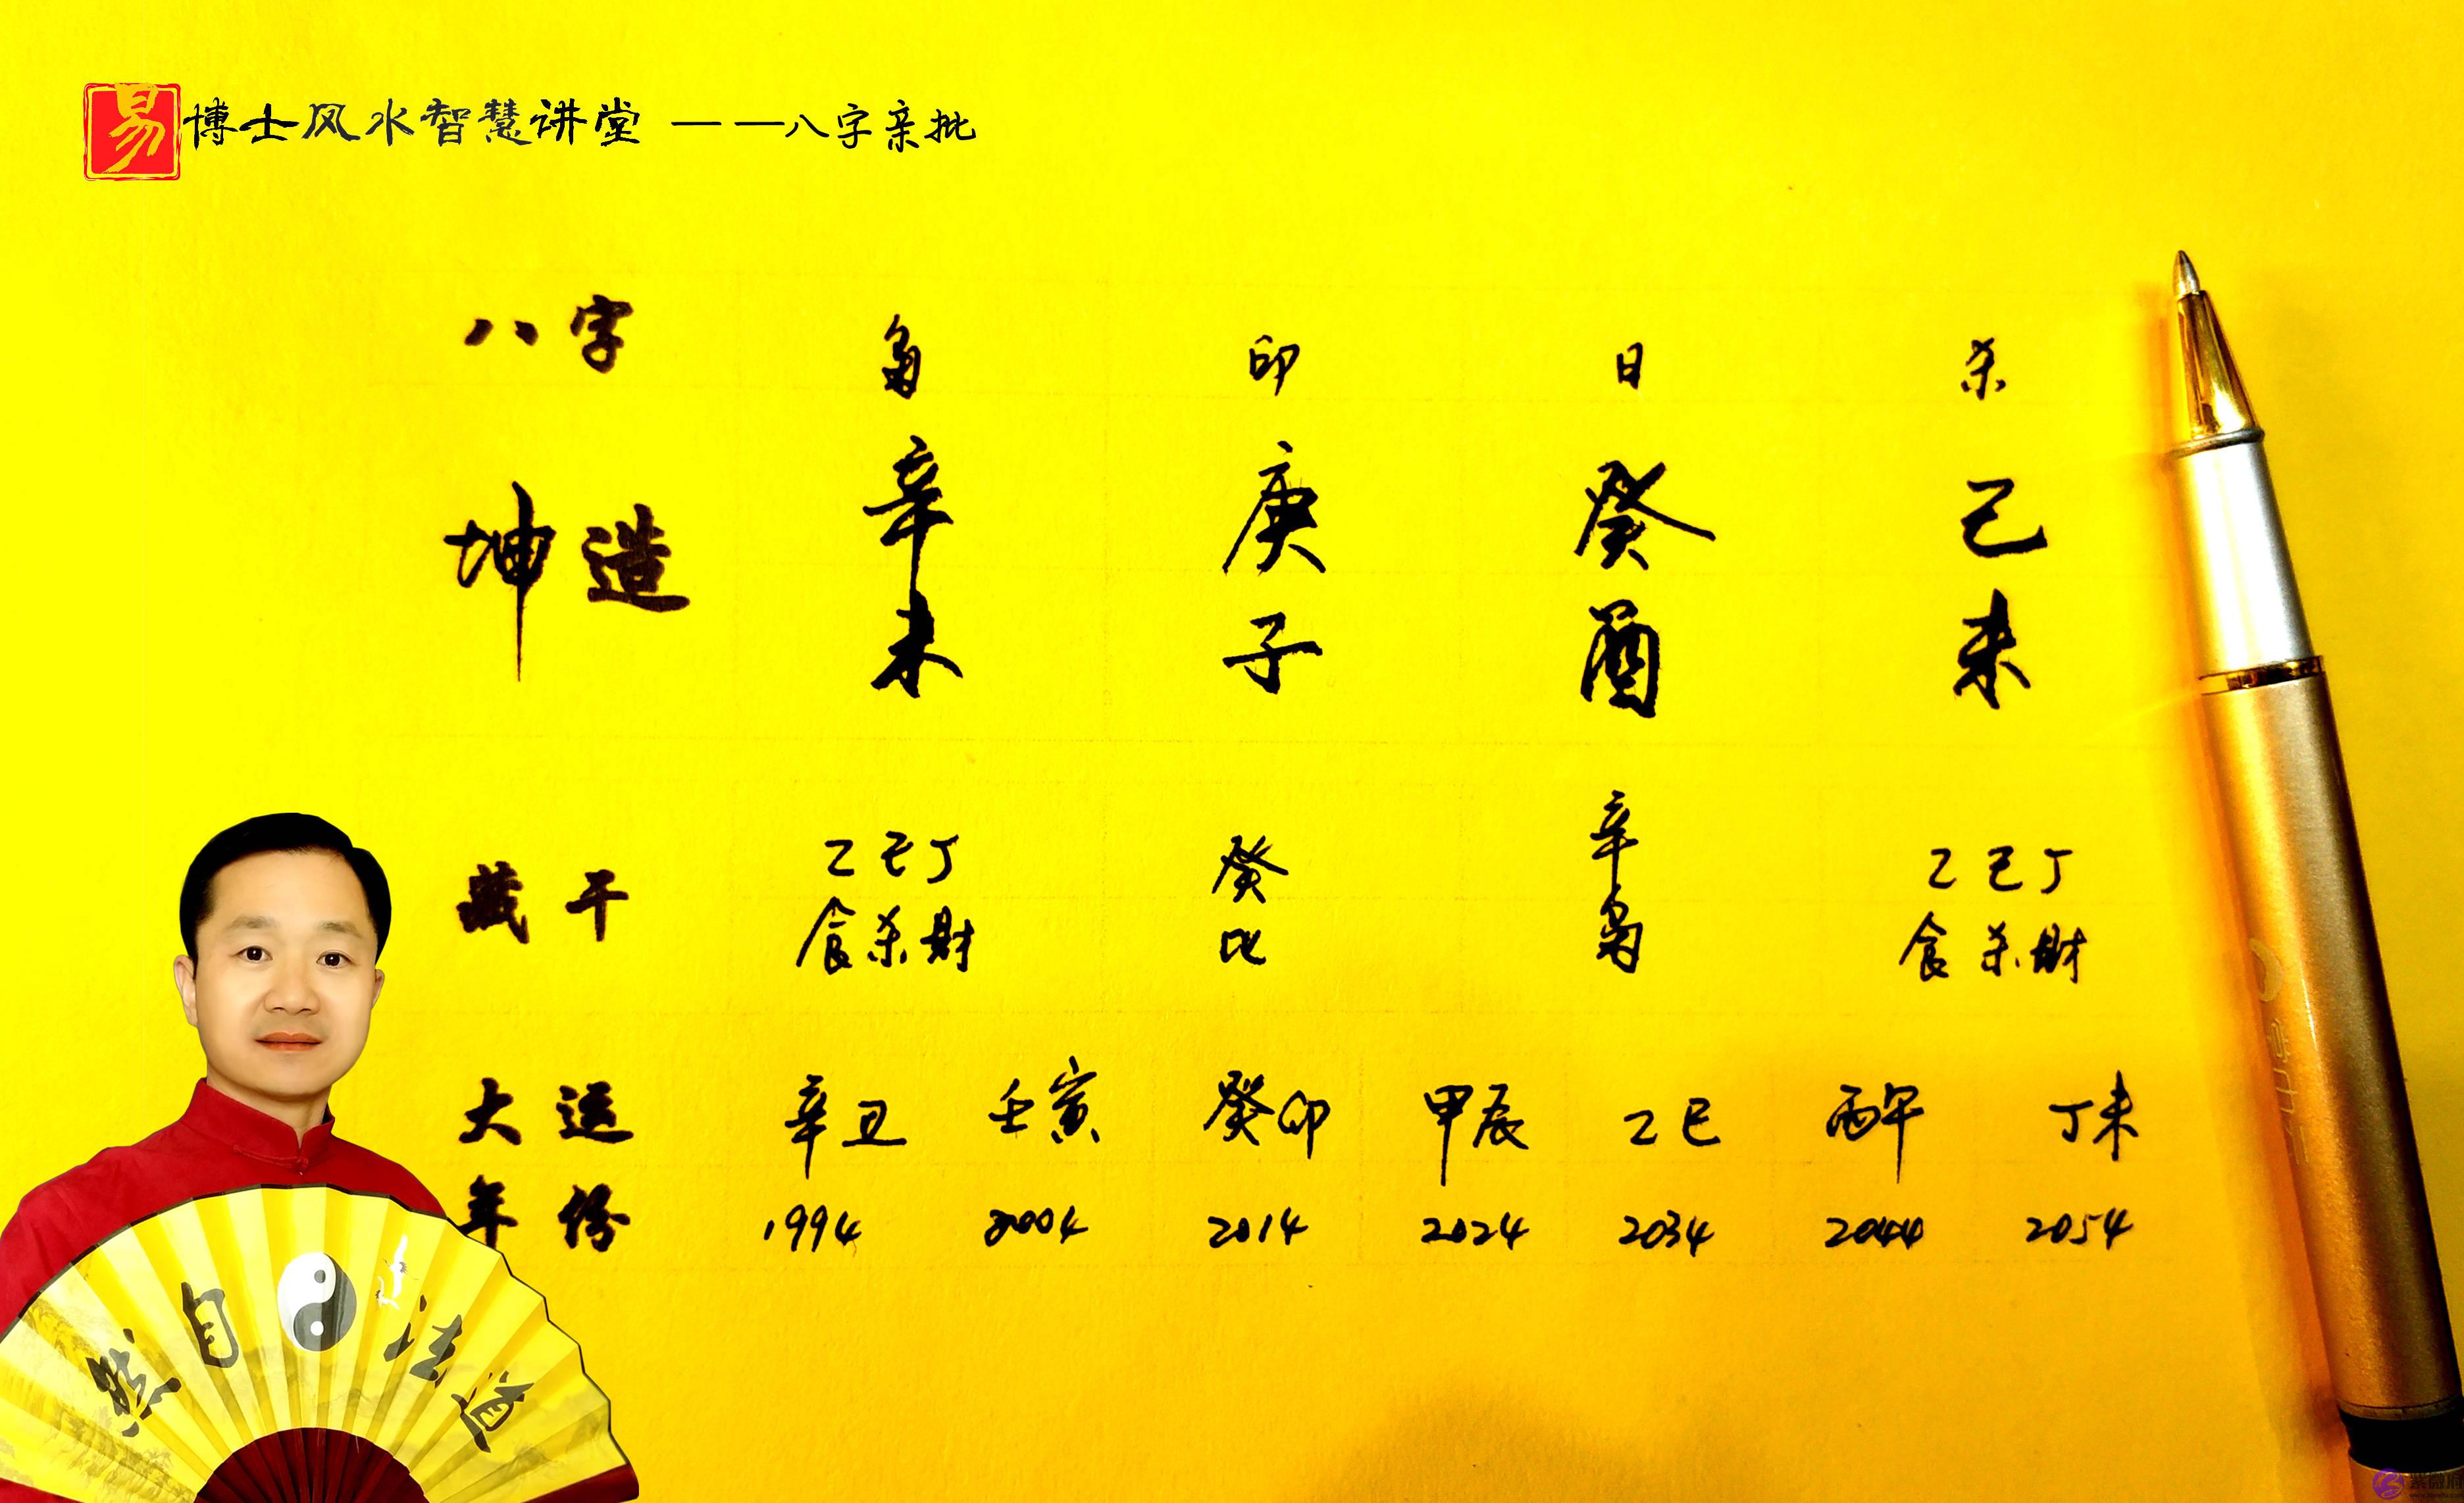 易博士风水智慧讲堂 ——八字亲批
八字 枭 印 日 杀
坤造 辛 庚 癸 己
未 子 酉 未
藏干 乙己丁 癸 辛 乙己丁
食杀财 比 枭 食杀财
大运 辛丑 壬寅 癸卯 甲辰 乙巳 丙午 丁未
年份 1994 2004 2014 2024 2034 2044 2054
然自法道